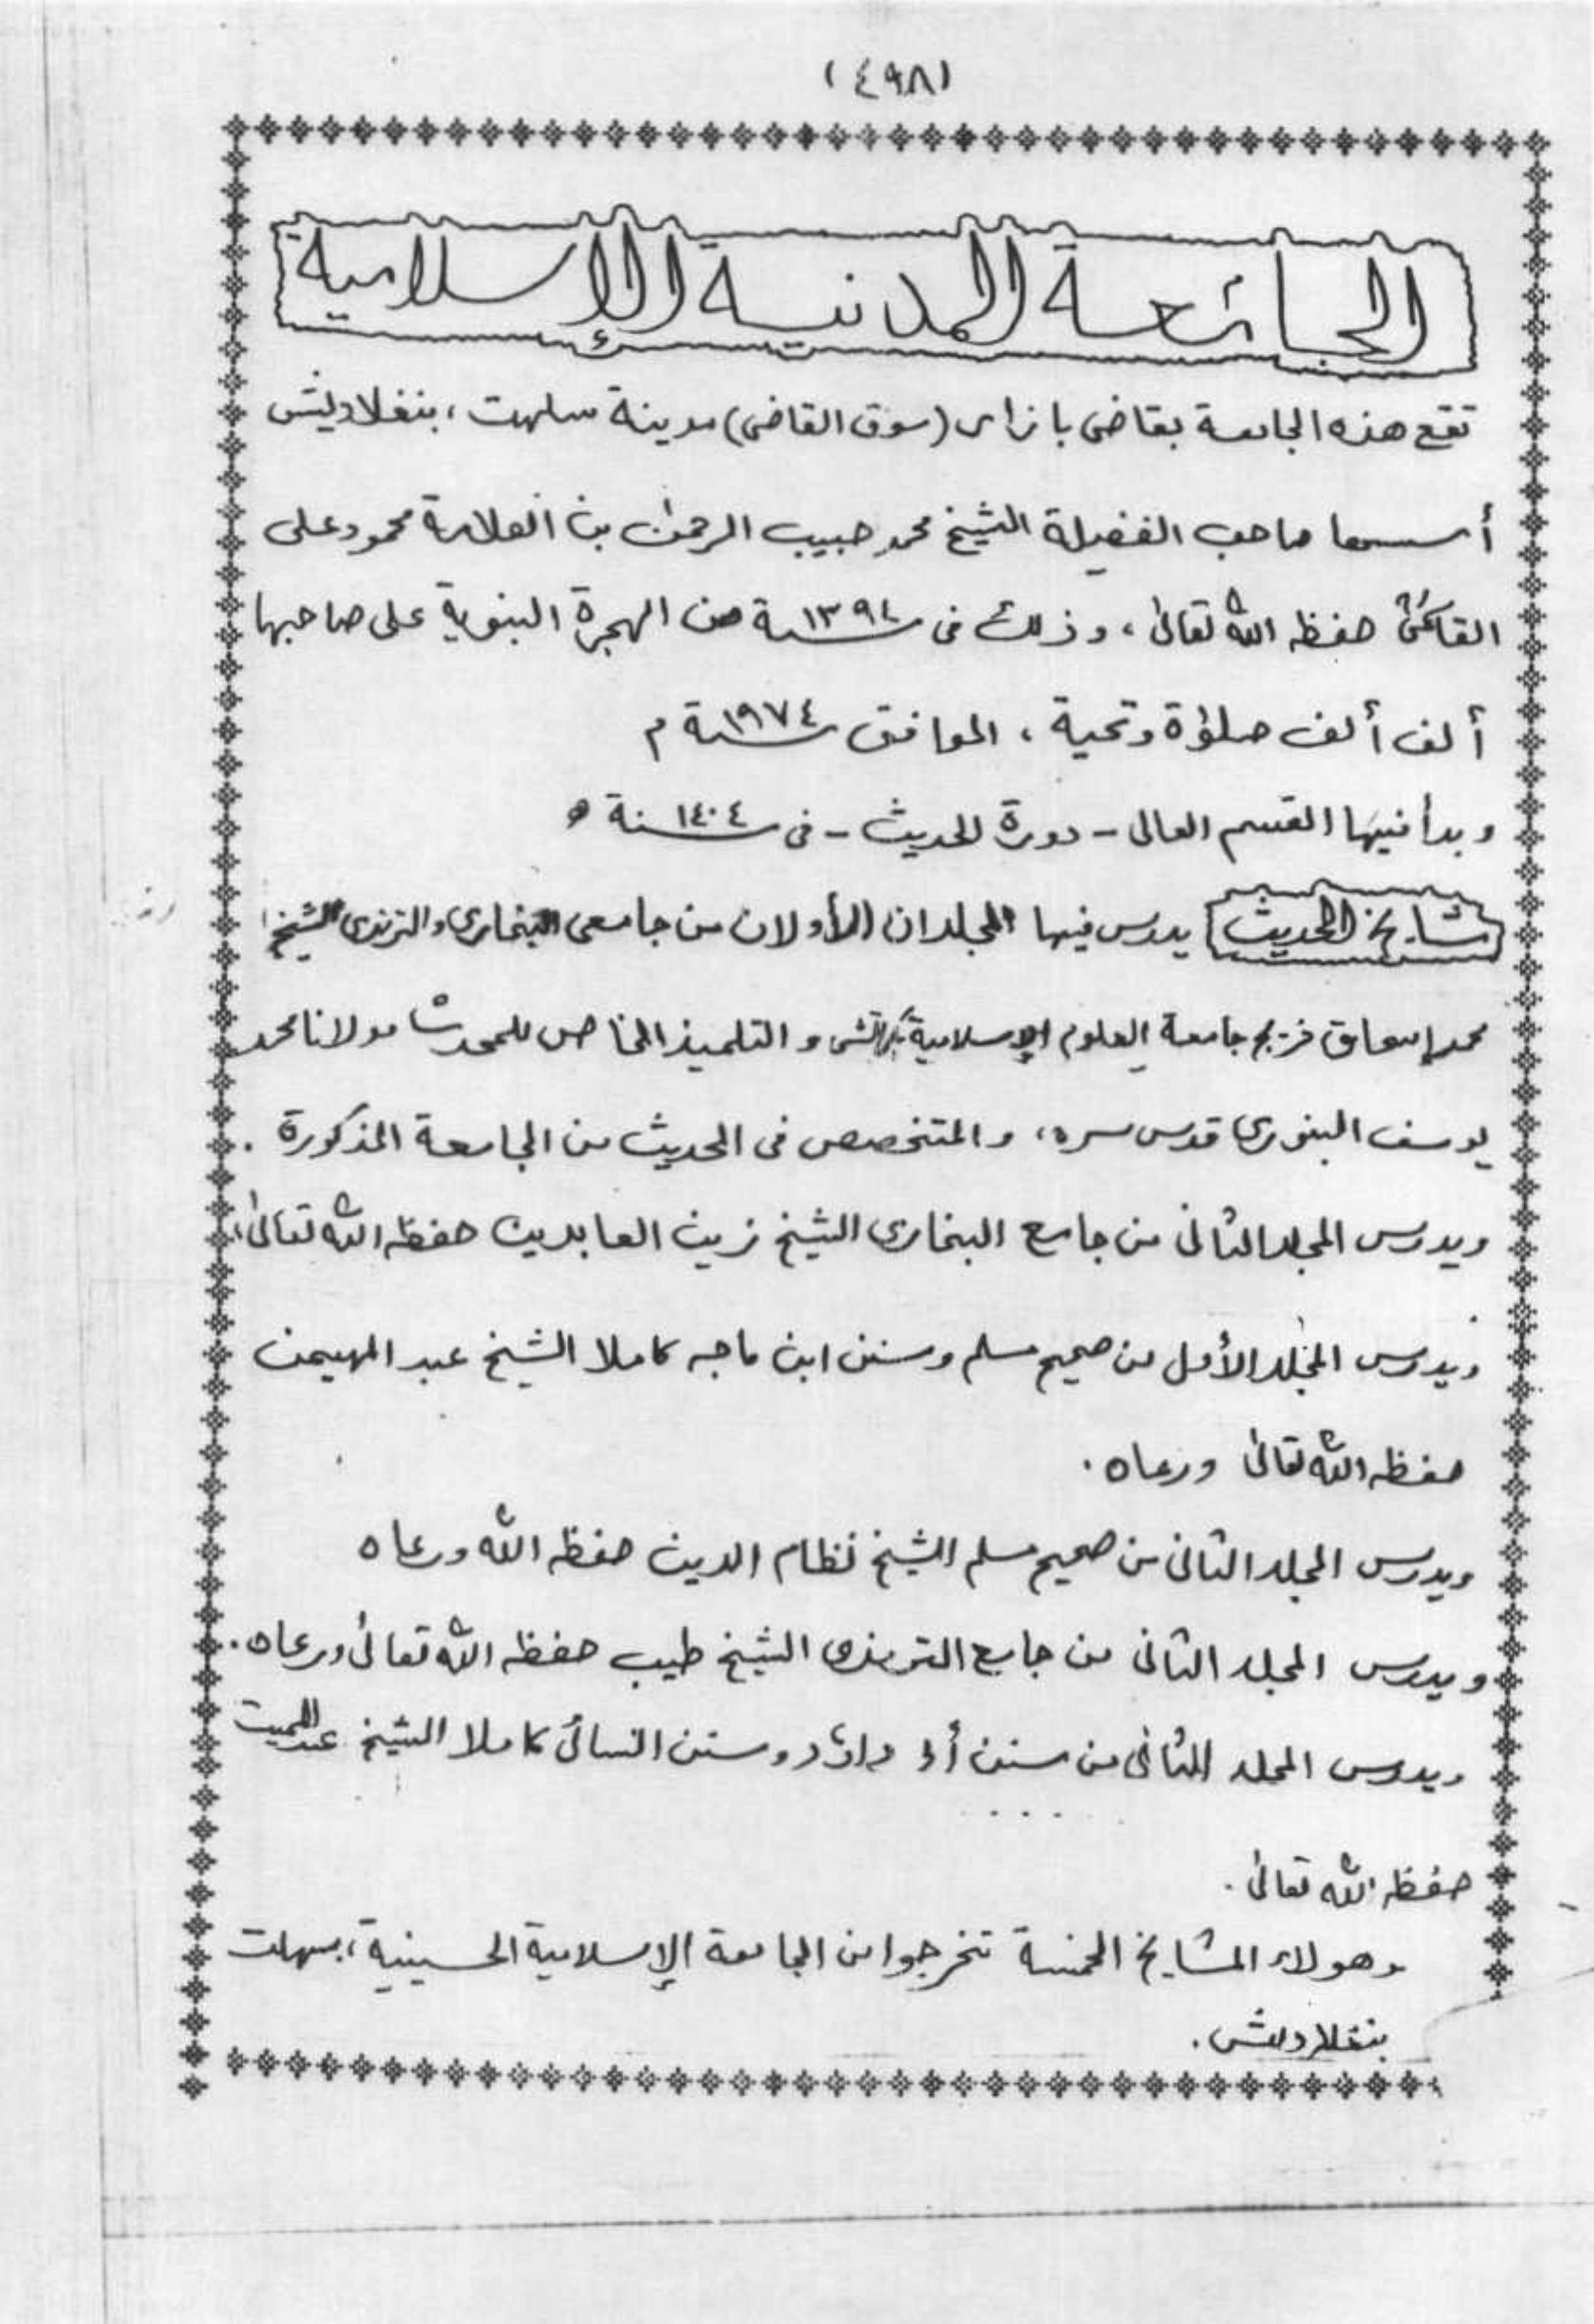 (٤٩٨)
الجامعة المدنية الإسلامية
تقع هذه الجامعة بقاضى بازار (سوق القاضى) مدينة سلهت ، بنغلاديش
أسسها صاحب الفضيلة الشيخ محمد حبيب الرحمٰن بن العلامة محمود على
حفظه الله تعالىٰ ، وذلك فى ١٣٩٤سنة من الهجرة النبوية على صاحبها
ألف ألف صلوٰة وتحية ، الموافق ١٩٧٤سنة م
وبدأ فيها القسم العالى - دورة الحديث - فى ١٤٠٤سنة ه
مشايخ الحديث يدرس فيها المجلدان الأولان من جامعى البخارى والترمذى الشيخ
محمد إسحاق خريج جامعة العلوم الإسلامية كراتشى و التلميذ الخاص للمحدث مولانا محمد
يوسف البنورى قدس سره ، والمتخصص فى الحديث من الجامعة المذكورة .
ويدرس المجلد الثانى من جامع البخارى الشيخ زين العابدين حفظه الله تعالىٰ ،
ويدرس المجلد الأول من صحيح مسلم وسنن ابن ماجه كاملا الشيخ عبد المهيمن
حفظه الله تعالىٰ ورعاه .
ويدرس المجلد الثانى من صحيح مسلم الشيخ نظام الدين حفظه الله ورعاه
ويدرس المجلد الثانى من جامع الترمذى الشيخ طيب حفظه الله تعالىٰ ورعاه .
ويدرس المجلد الثانى من سنن أبى داؤد وسنن النسائى كاملا الشيخ
حفظه الله تعالىٰ .
وهولاء المشايخ الخمسة تخرجوا من الجامعة الإسلامية الحسينية ، بسهلت
بنغلاديش .